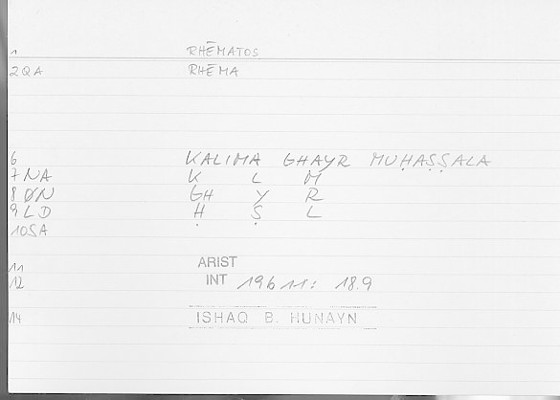 1 RHĒMATOS
2 QA RHĒMA
6 KALIMA GHAYR MUḤAṢṢALA
7 NA K L M
8 ØN GH Y R
9 LD Ḥ Ṣ L
10 SA
11 ARIST
12 INT 19b11: 18.9
14 ISHAQ B. HUNAYN